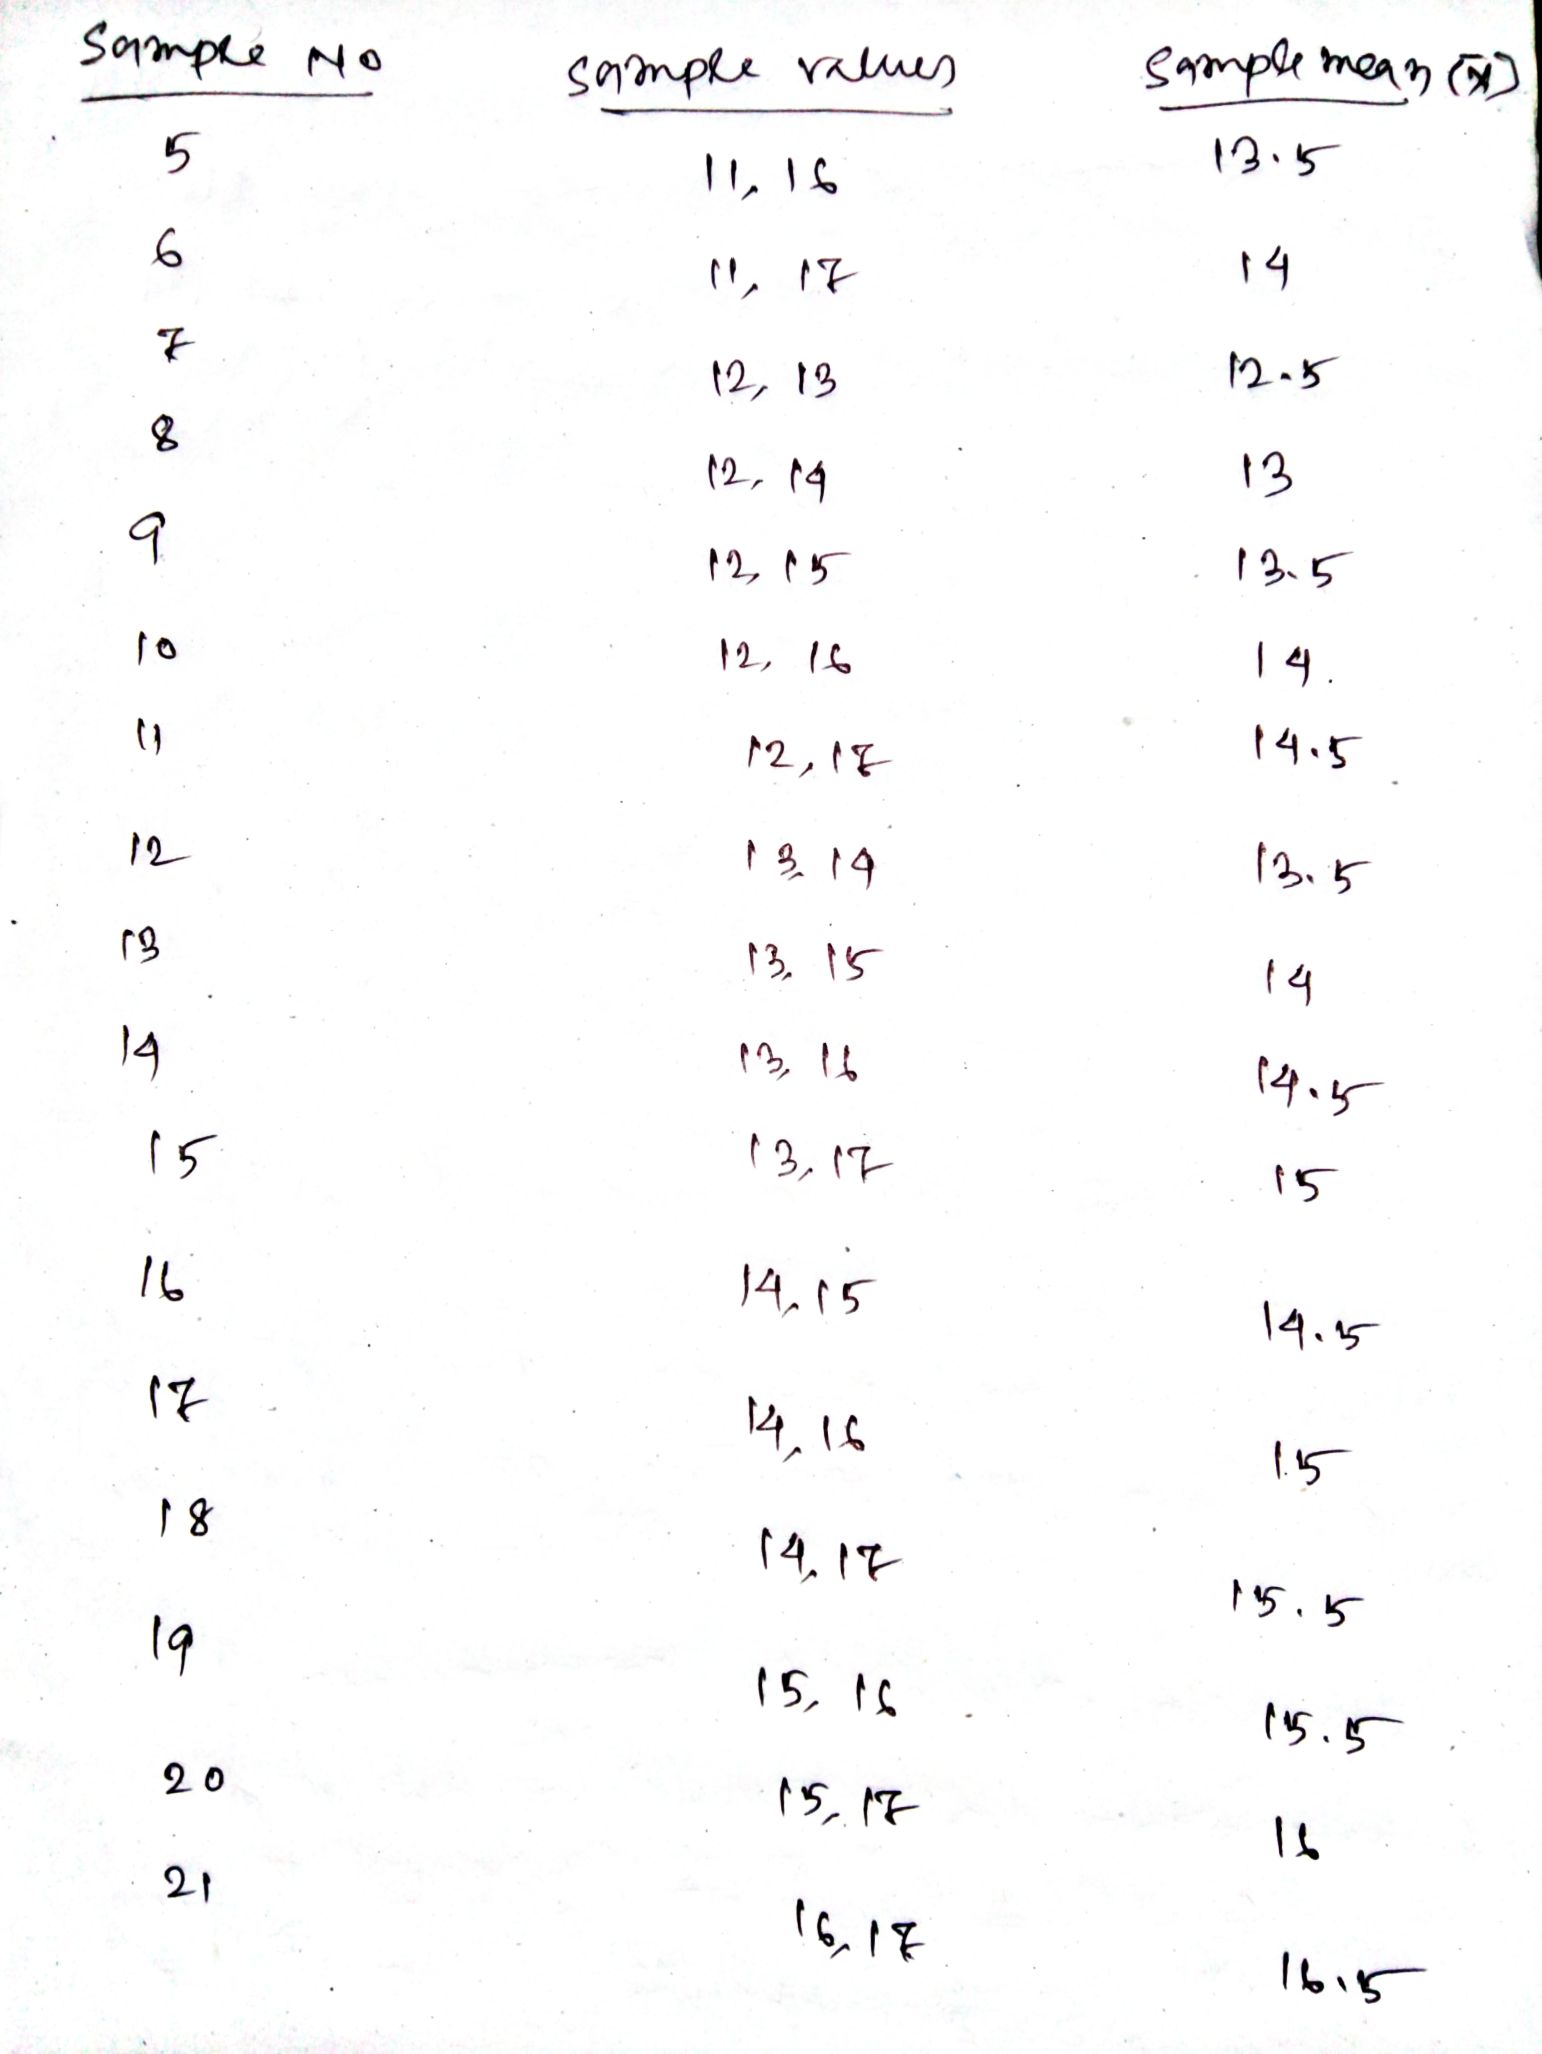 Sample No sample values Sample mean (x̄)
5 11, 16 13.5
6 11, 17 14
7 12, 13 12.5
8 12, 14 13
9 12, 15 13.5
10 12, 16 14.
11 12, 17 14.5
12 13, 14 13.5
13 13, 15 14
14 13, 16 14.5
15 13, 17 15
16 14, 15 14.5
17 14, 16 15
18 14, 17 15.5
19 15, 16 15.5
20 15, 17 16
21 16, 17 16.5